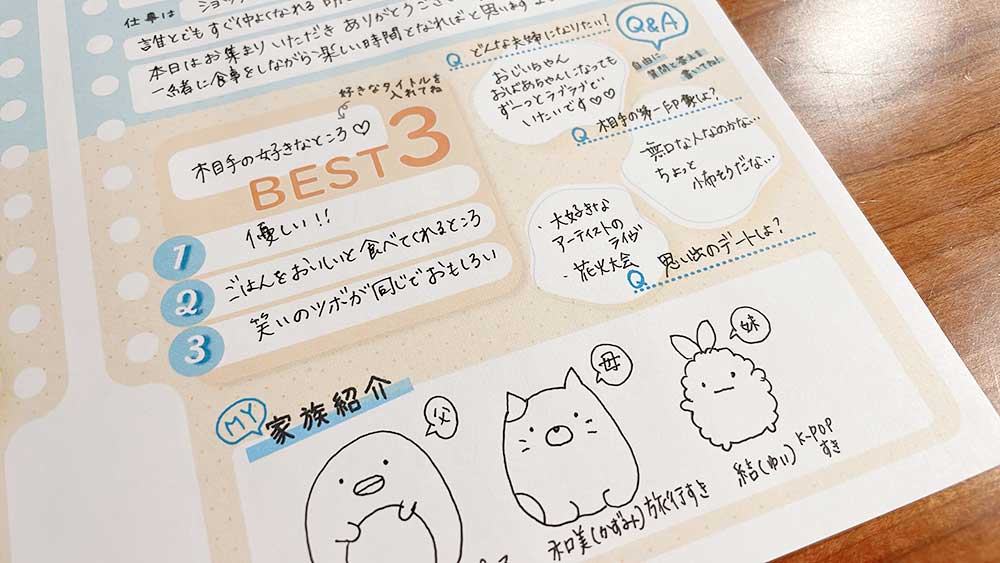 仕事は ショッ
誰とでもすぐ仲よくなれる
本日はお集まりいただき ありがとうござ
一緒に食事をしながら楽しい時間となればと思います
好きなタイトルを
入れてね
相手の好きなところ♡
BEST3
1 優しい!!
2 ごはんをおいしいと食べてくれるところ
3 笑いのツボが同じでおもしろい
Q&A
自由に
質問と答えを
書いてね!
Q どんな夫婦になりたい?
おじいちゃん
おばあちゃんになっても
ずーっとラブラブで
いたいです♡♡
Q 相手の第一印象は?
無口な人なのかな…
ちょっと
怖そうだな…
Q 思い出のデートは?
・大好きな
アーティストの
ライヴ
・花火大会
MY 家族紹介
父
母
和美(かずみ)旅行すき
妹
結(ゆい) K-POP
すき